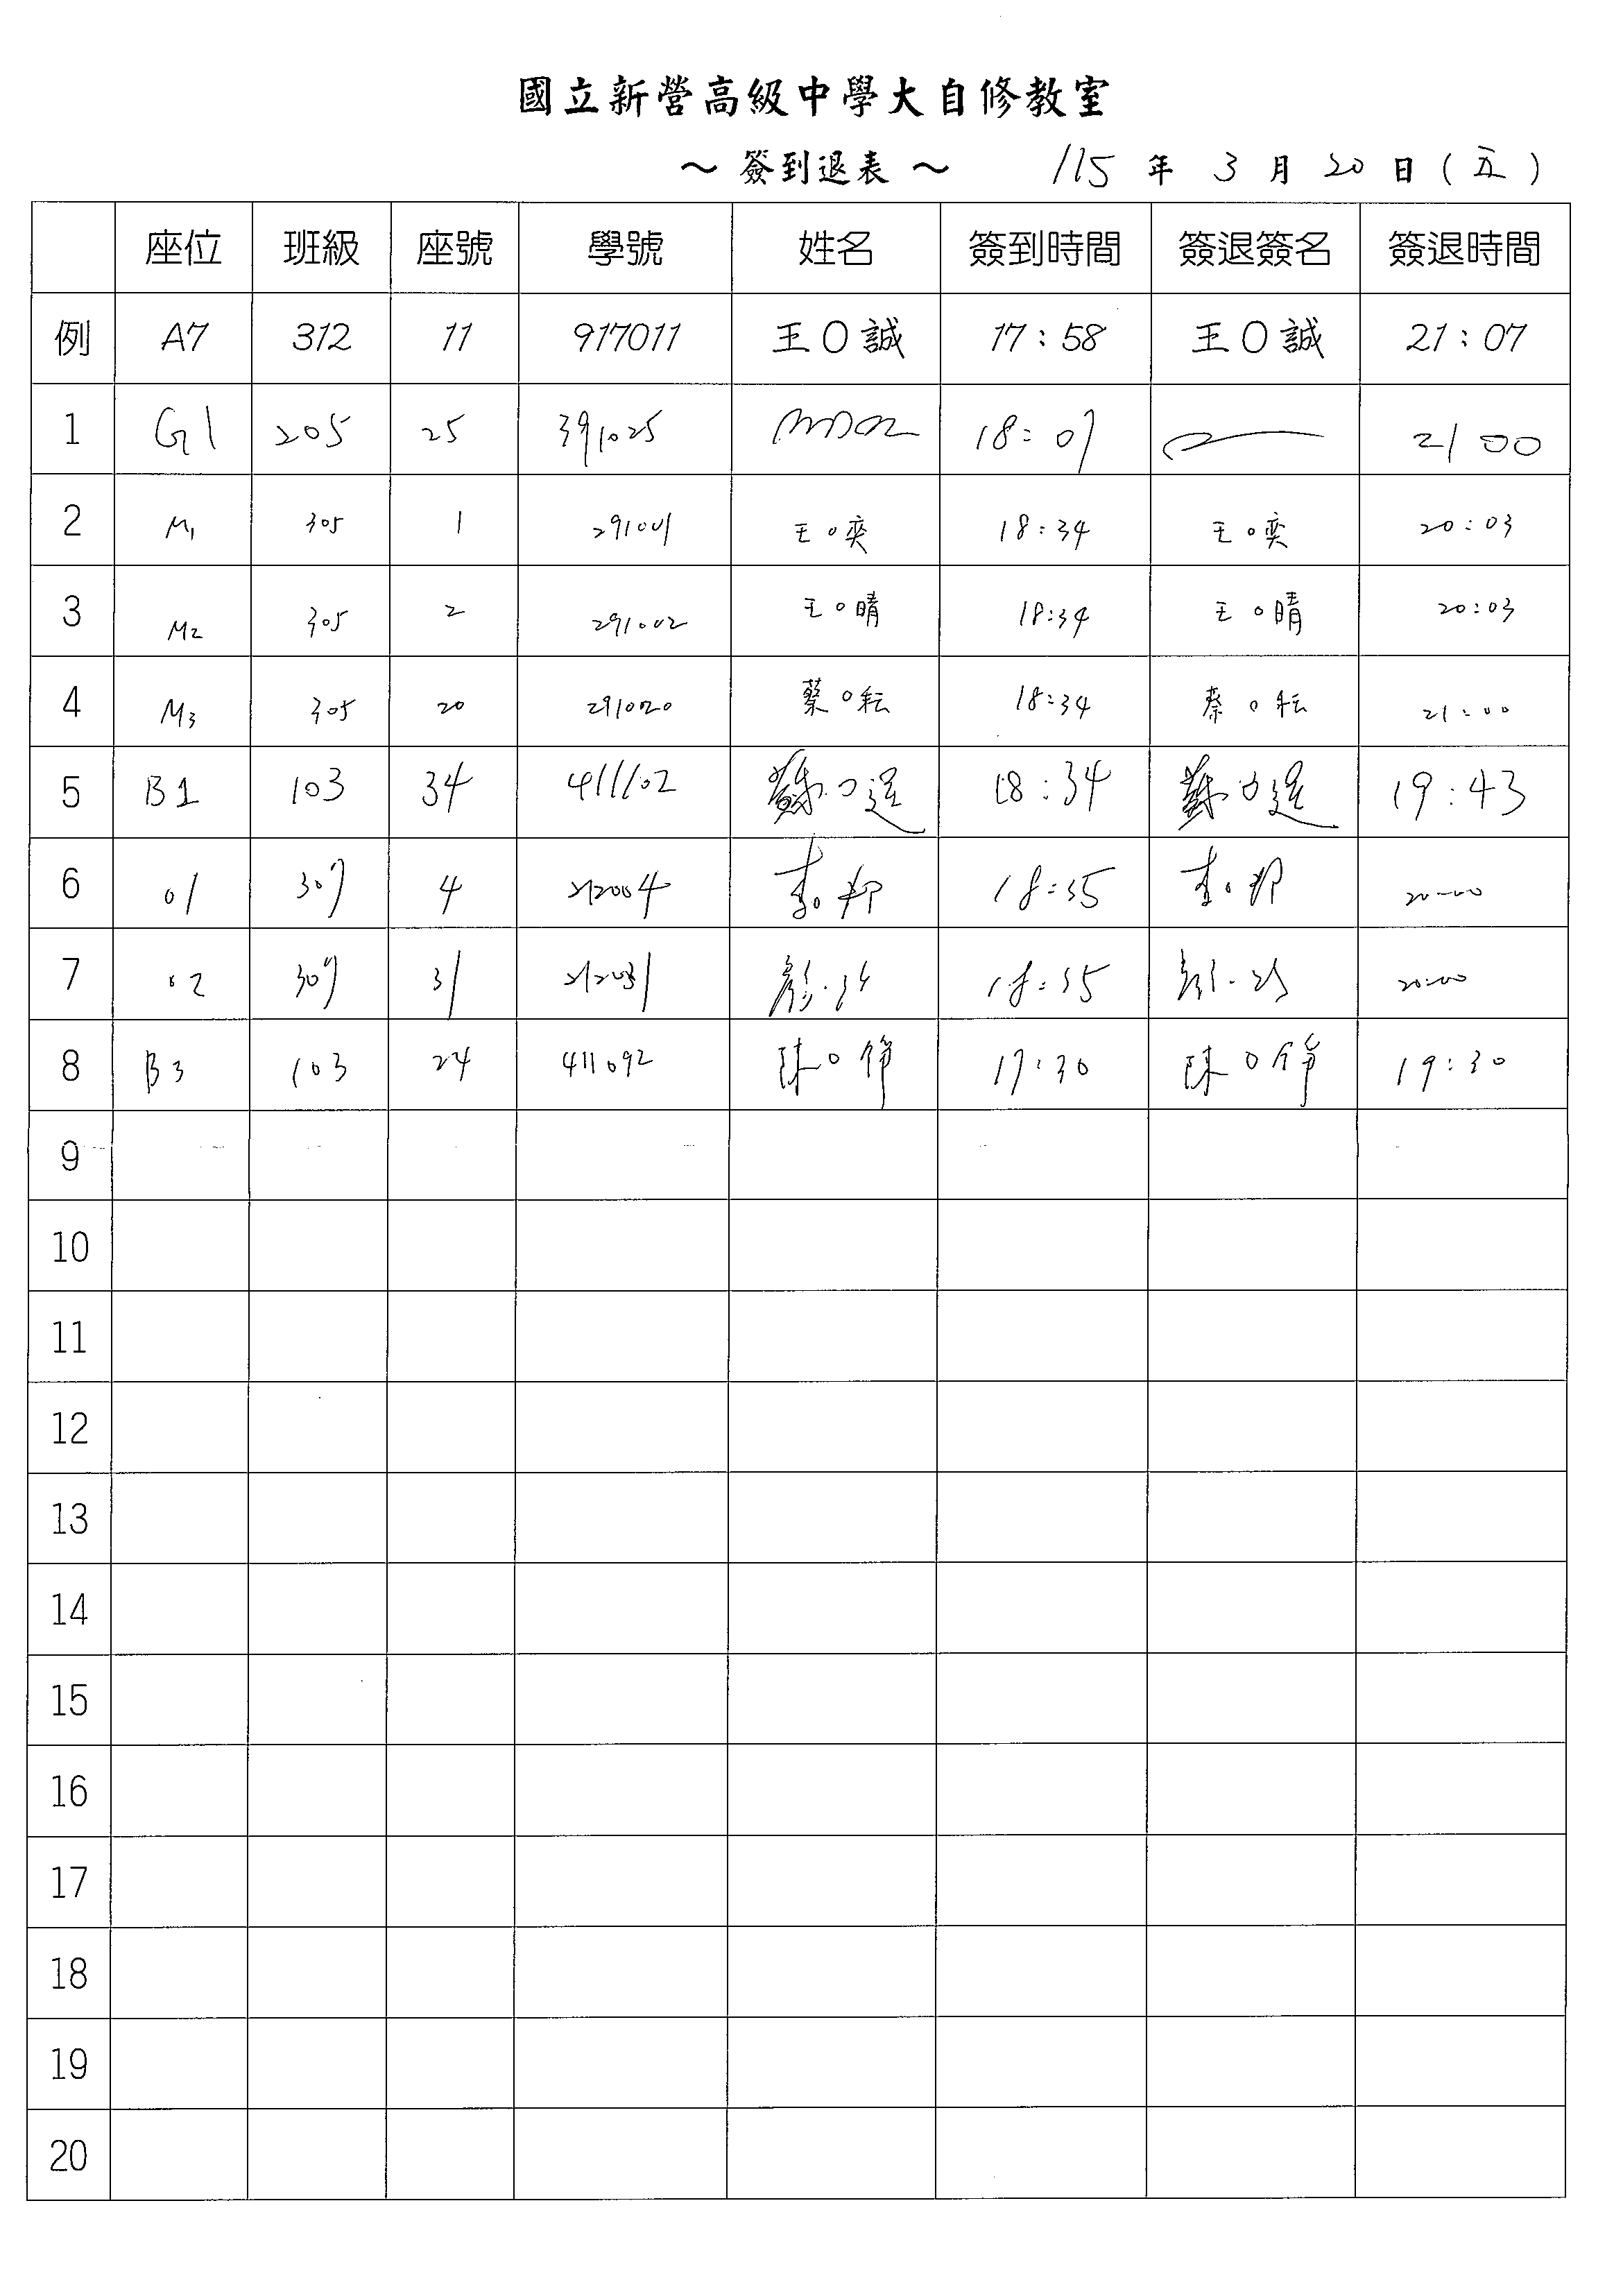 國立新營高級中學大自修教室
～ 簽到退表 ～ 115 年 3 月 20 日 ( 五 )
座位 班級 座號 學號 姓名 簽到時間 簽退簽名 簽退時間
例 A7 312 11 917011 王O誠 17:58 王O誠 21:07
1 G1 205 25 391025 18:07 21 00
2 M1 305 1 291001 王O奕 18:34 王O奕 20:03
3 M2 305 2 291002 王O晴 18:34 王O晴 20:03
4 M3 305 20 291020 蔡O耘 18:34 蔡O耘 21:00
5 B1 103 34 411102 蘇O 18:34 蘇O 19:43
6 01 307 4 212004 李O 18:35 李O 20:00
7 02 307 31 212031 顏O 18:35 20:00
8 B3 103 24 411092 陳O錚 17:30 陳O錚 19:30
9
10
11
12
13
14
15
16
17
18
19
20